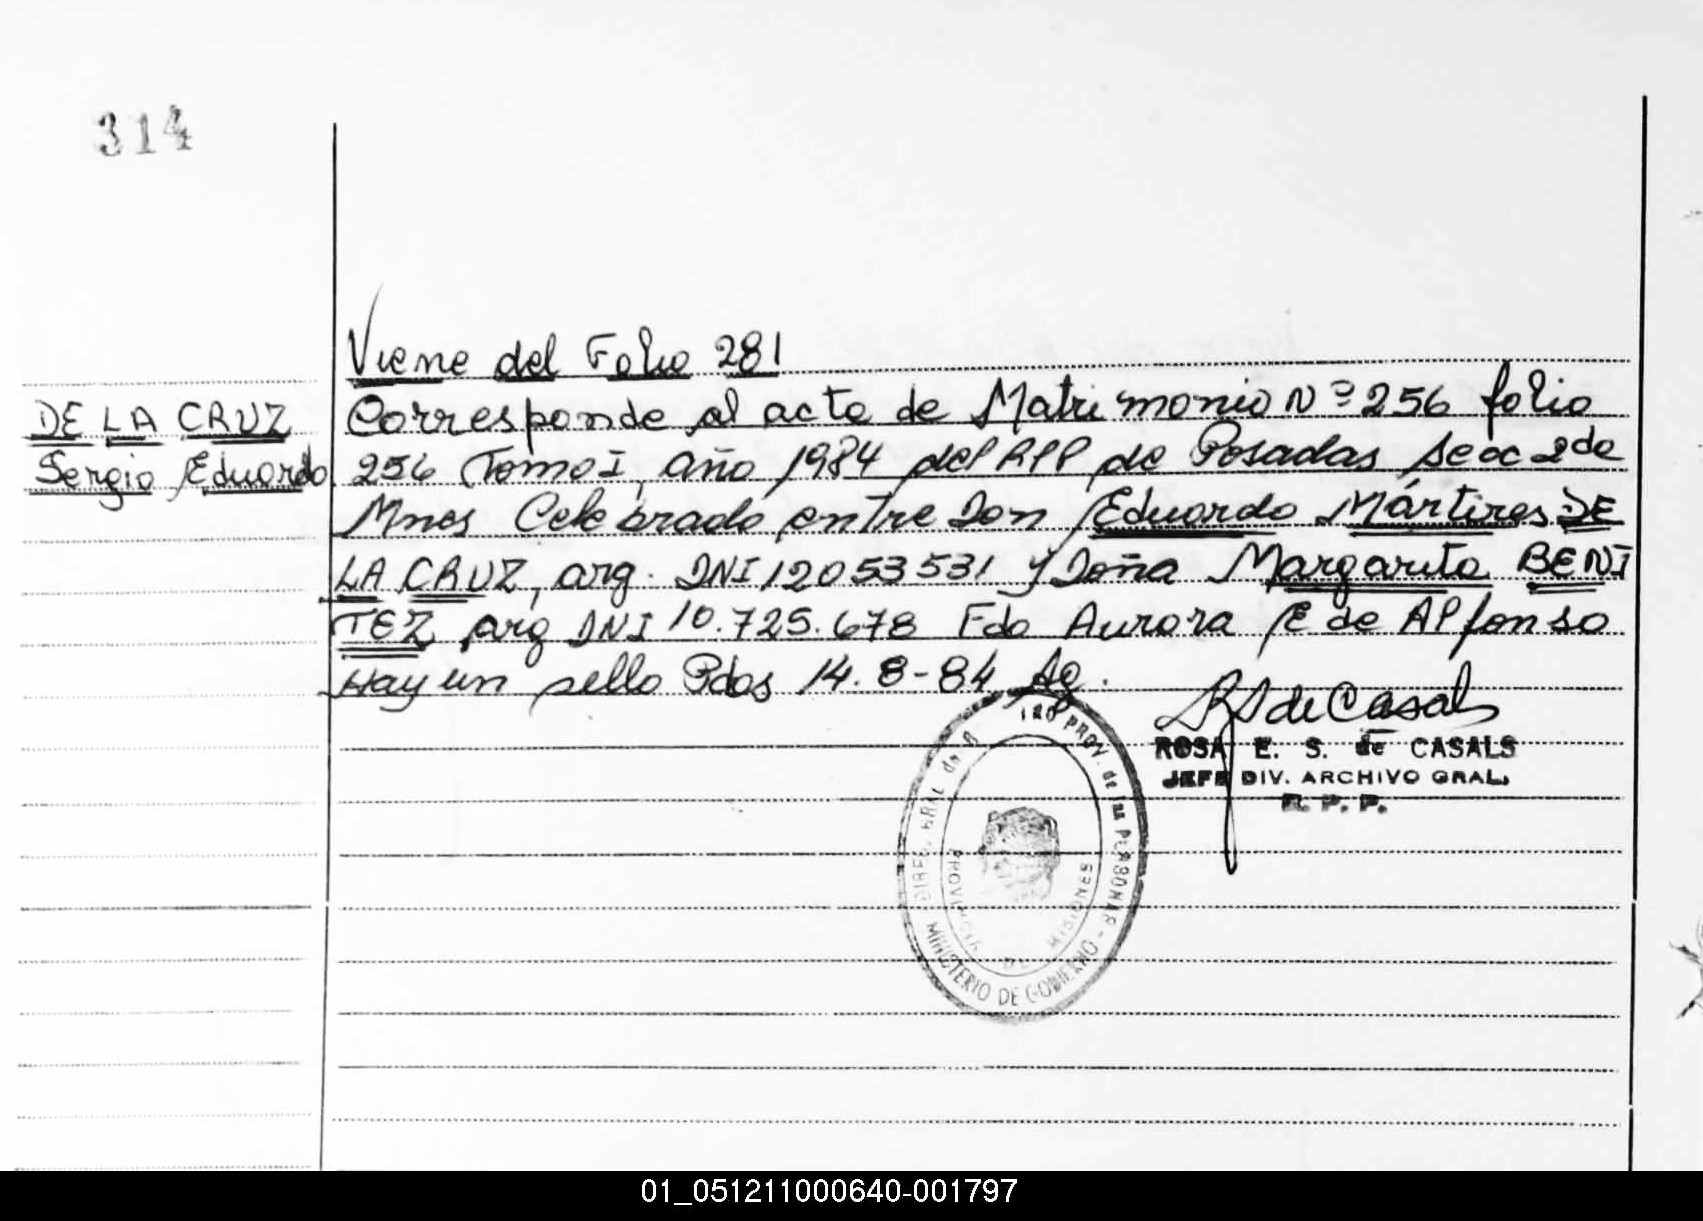 314
Viene del Folio 281
DE LA CRUZ
Sergio Eduardo
Corresponde al acta de Matrimonio Nº 256 folio
256 Tomo I, año 1984 del RPP de Posadas Secc 2da
Mnes Celebrado entre Don Eduardo Mártires DE
LA CRUZ, arg. DNI 12053531 y Doña Margarita BENI
TEZ arg DNI 10.725.678 Fdo Aurora E de Alfonso
Hay un sello Pdas 14.8-84 Ag.
RS de Casals
ROSA E. S. de CASALS
JEFE DIV. ARCHIVO GRAL.
R. P. P.
PROV. de las PERSONAS - MINISTERIO DE GOBIERNO
PROVINCIA DE MISIONES
01_051211000640-001797